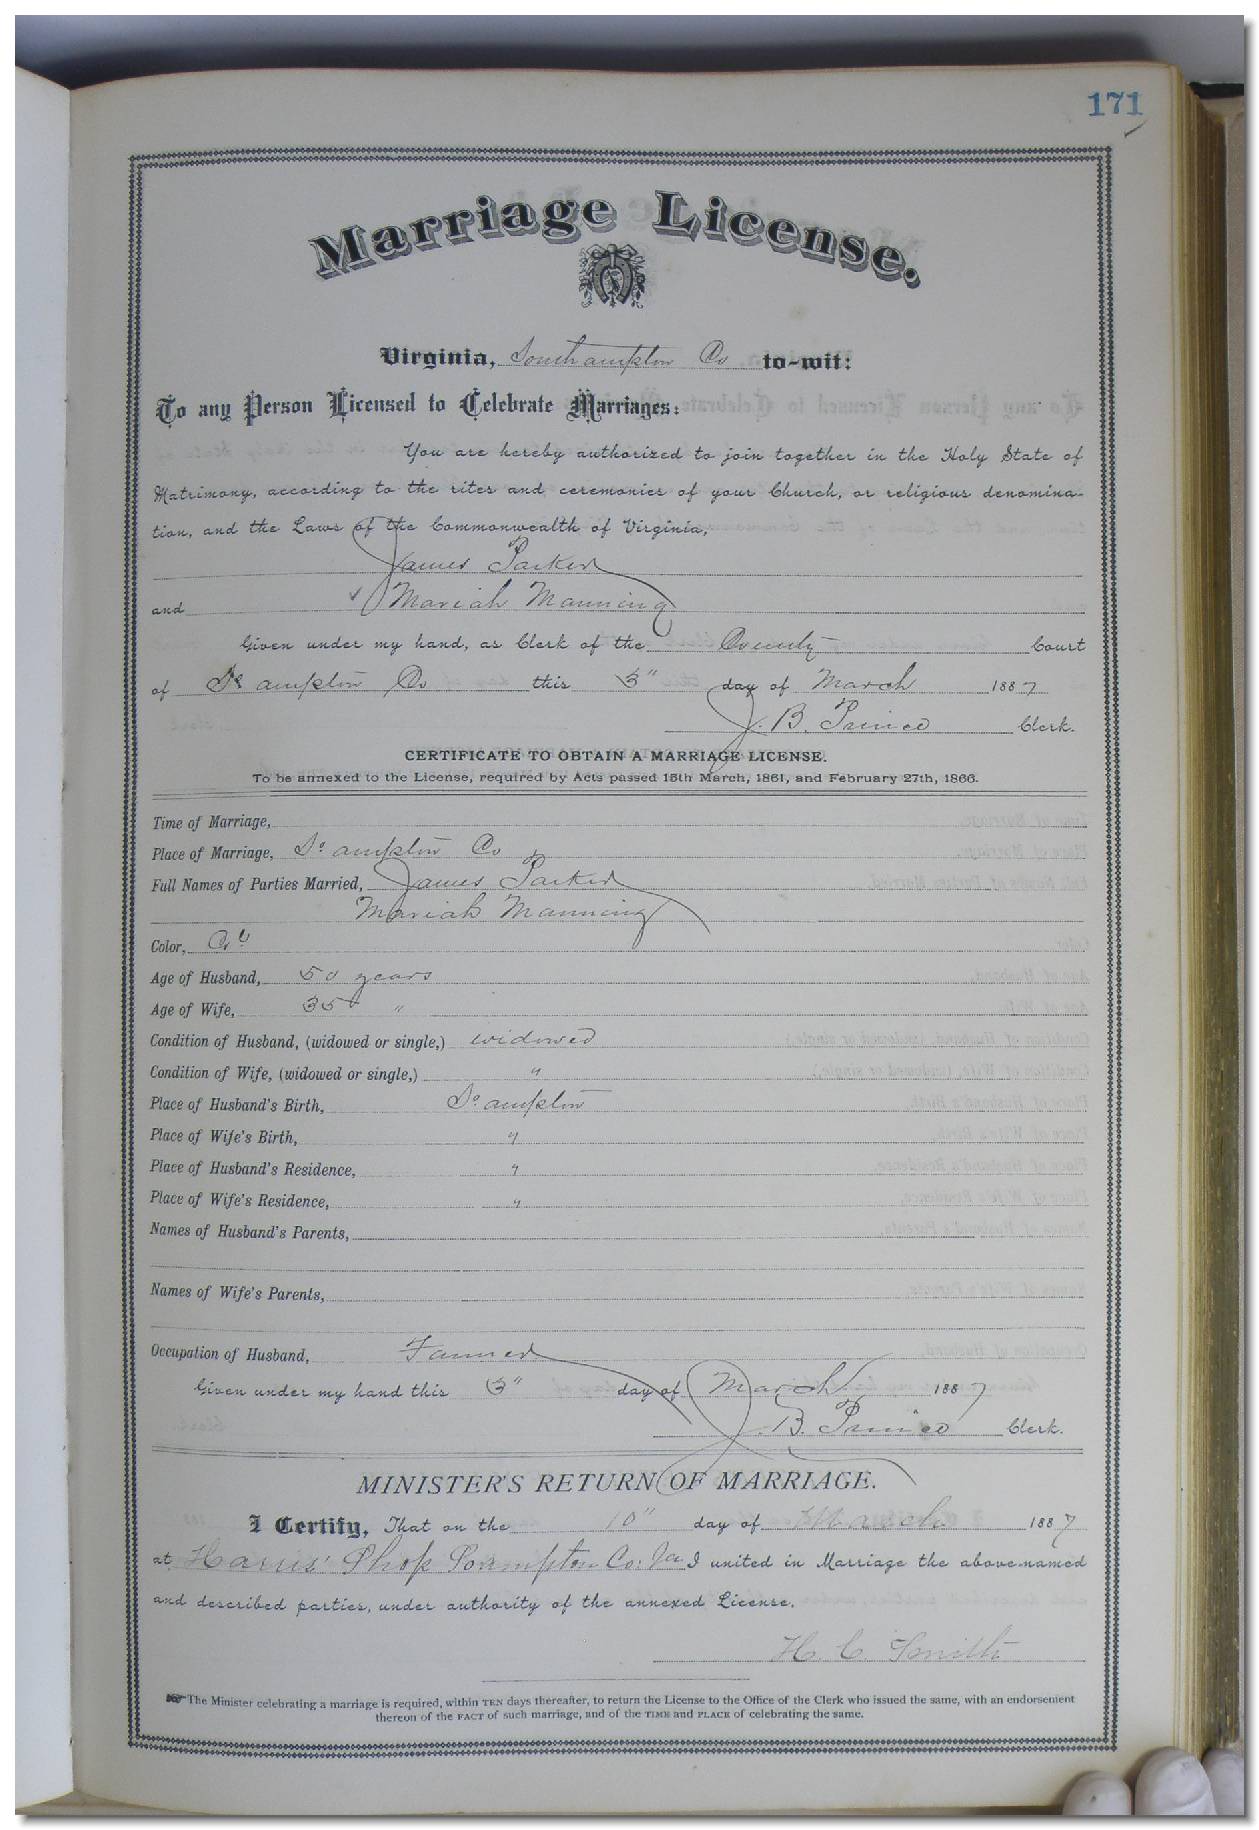 171
Marriage License.
Virginia, Southampton Co to-wit:
To any Person Licensed to Celebrate Marriages:
You are hereby authorized to join together in the Holy State of
Matrimony, according to the rites and ceremonies of your Church, or religious denomina-
tion, and the Laws of the Commonwealth of Virginia,
James Parker
and Mariah Manning
Given under my hand, as Clerk of the County Court
of So ampton Co this 3" day of March 1887
J. B. Prince Clerk.
CERTIFICATE TO OBTAIN A MARRIAGE LICENSE.
To be annexed to the License, required by Acts passed 15th March, 1861, and February 27th, 1866.
Time of Marriage,
Place of Marriage, So ampton Co
Full Names of Parties Married, James Parker
Mariah Manning
Color, Col
Age of Husband, 50 years
Age of Wife, 35 "
Condition of Husband, (widowed or single,) widowed
Condition of Wife, (widowed or single,) "
Place of Husband's Birth, So ampton
Place of Wife's Birth, "
Place of Husband's Residence, "
Place of Wife's Residence, "
Names of Husband's Parents,
Names of Wife's Parents,
Occupation of Husband, Farmer
Given under my hand this 3" day of March 1887
J. B. Prince Clerk.
MINISTER'S RETURN OF MARRIAGE.
I Certify, That on the 10" day of March 1887
at Harris' Shop Sounpton Co: Va I united in Marriage the above-named
and described parties, under authority of the annexed License.
H. C. Smith
The Minister celebrating a marriage is required, within TEN days thereafter, to return the License to the Office of the Clerk who issued the same, with an endorsement
thereon of the FACT of such marriage, and of the TIME and PLACE of celebrating the same.